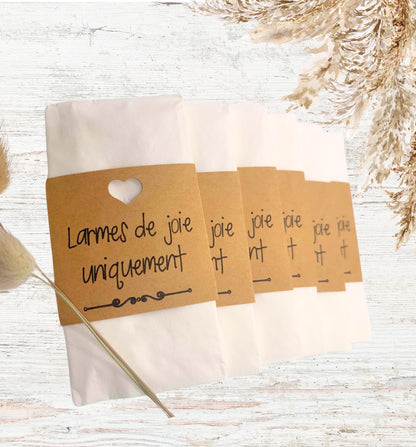 Larmes de joie
uniquement
joie
t
joie
t
joie
t
joie
t
joie
t